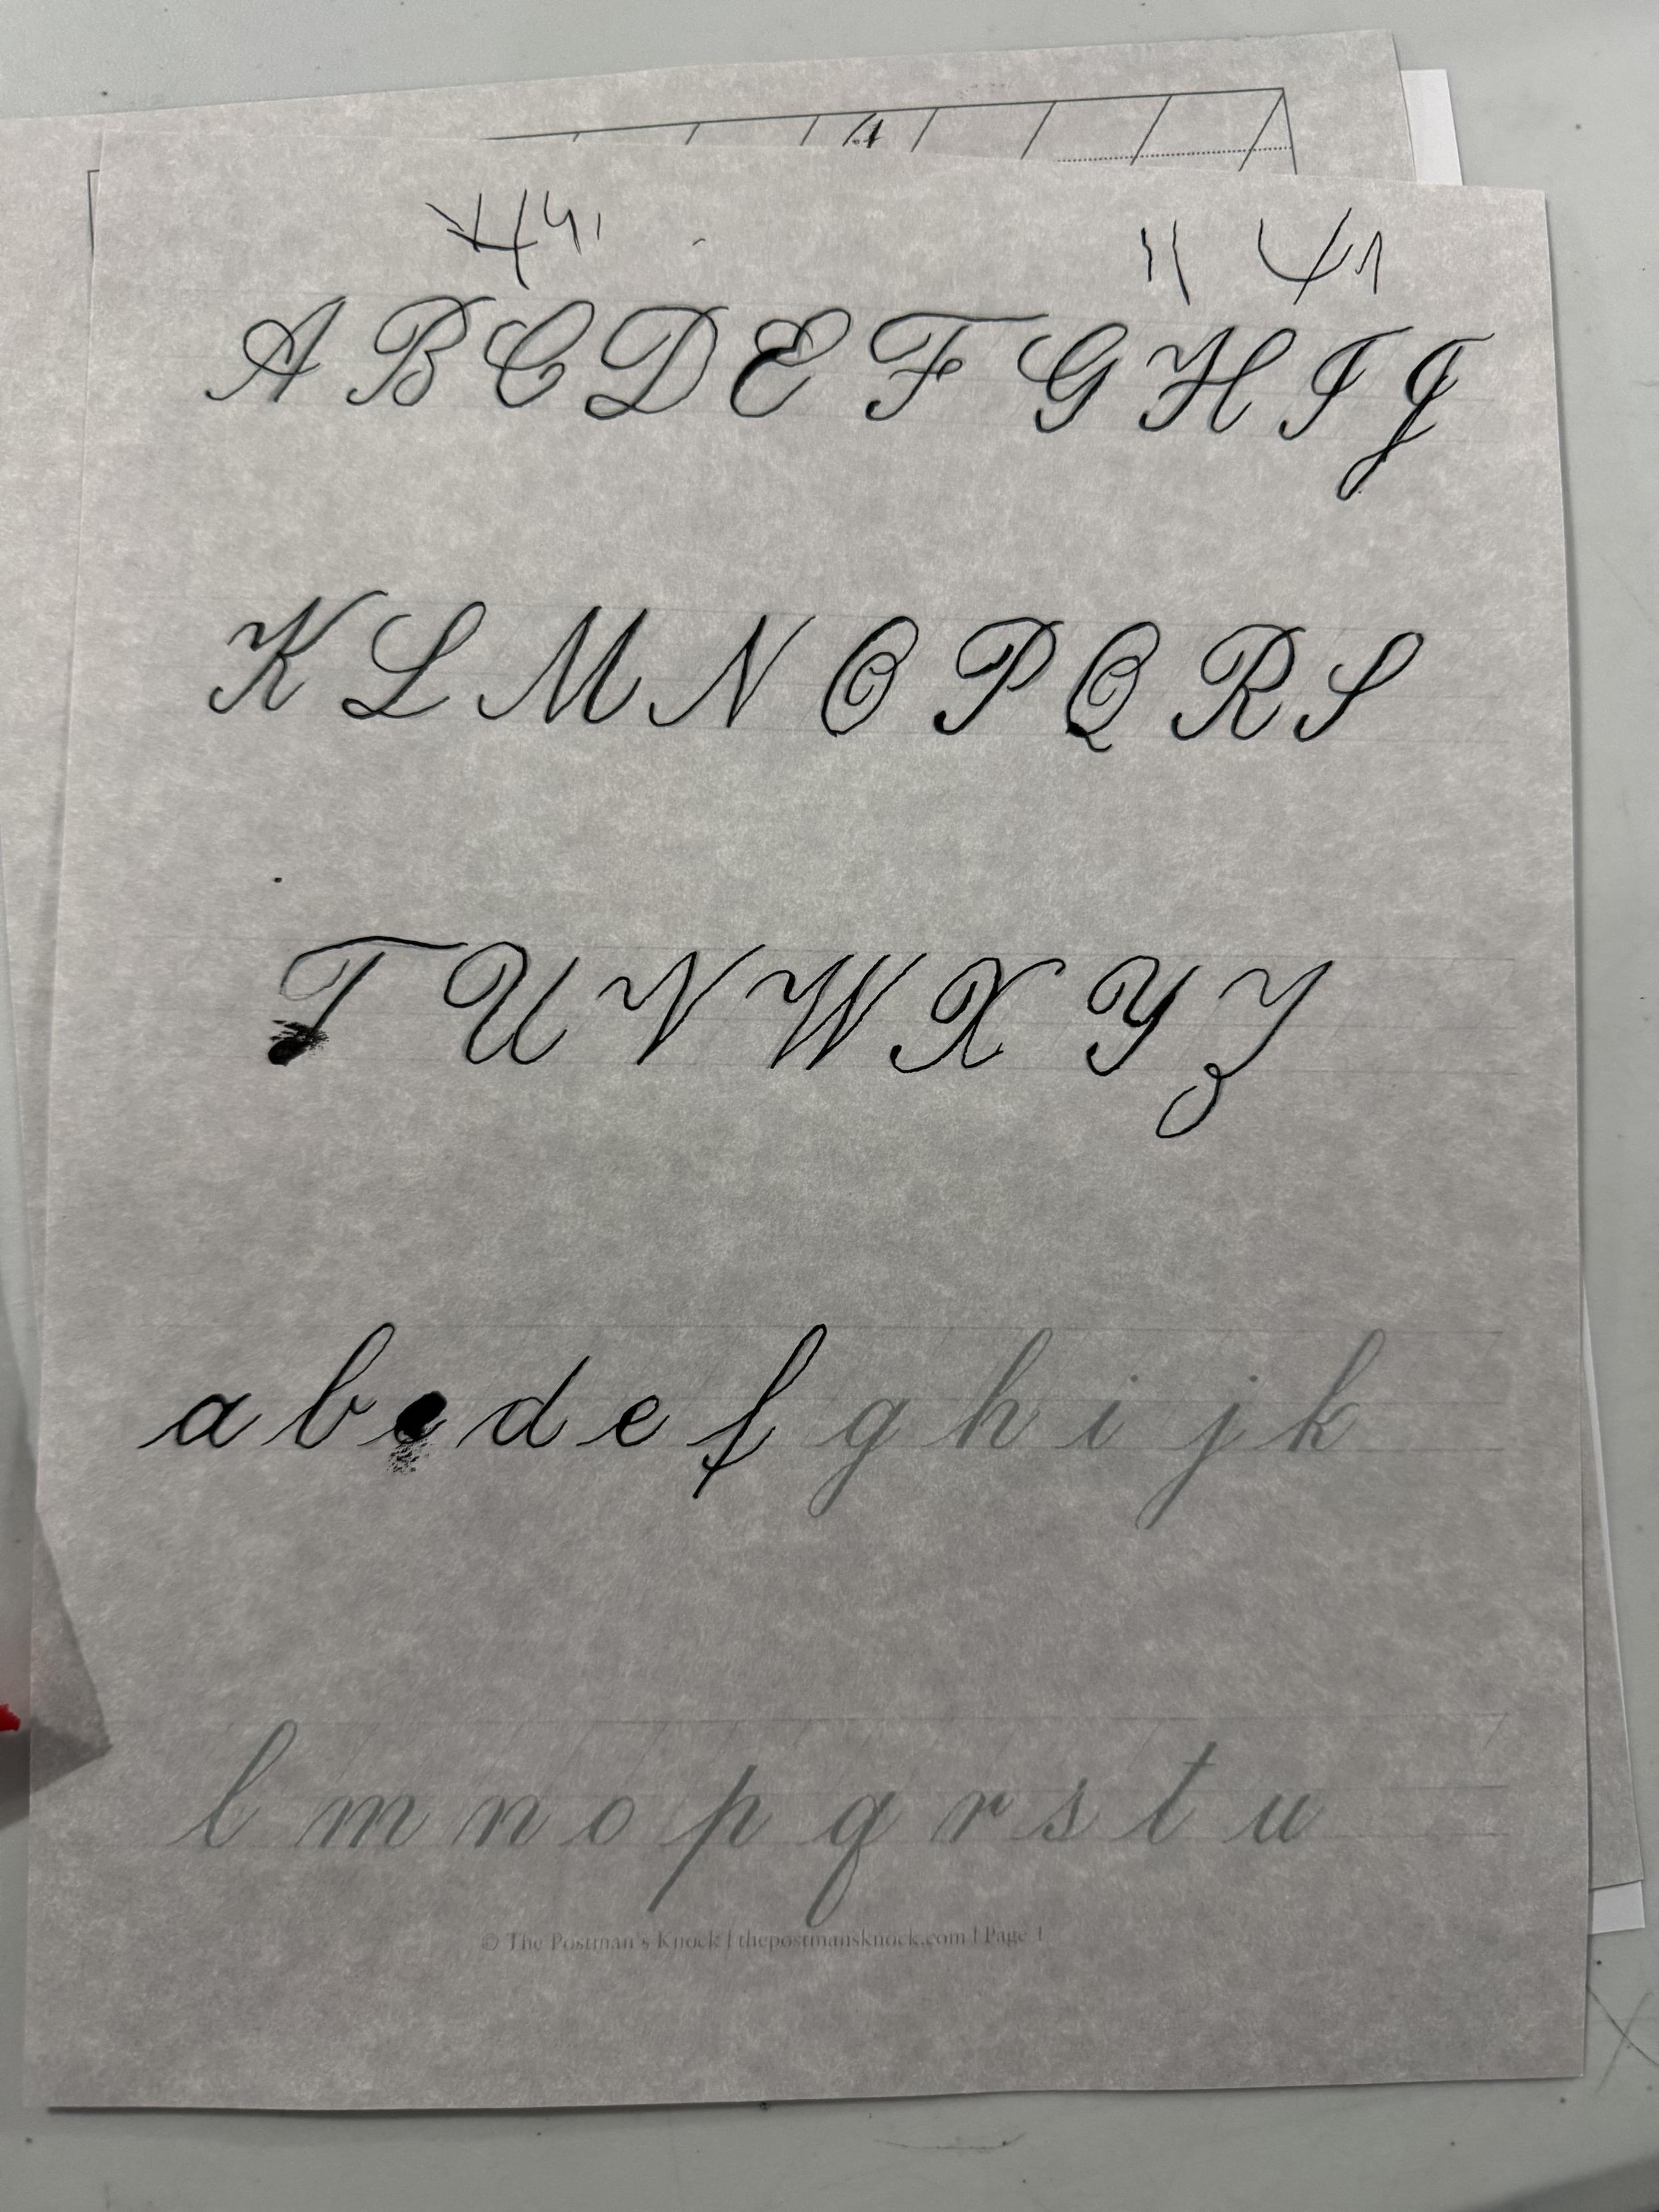 A B C D E F G H I J
K L M N O P Q R S
T U V W X Y Z
a b c d e f g h i j k
l m n o p q r s t u
© The Postman's Knock | thepostmansknock.com | Page 1